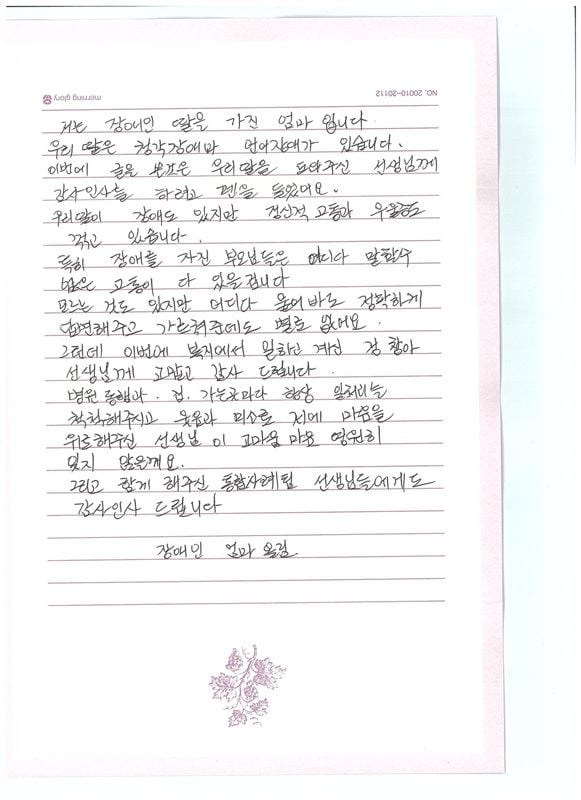 morning glory
NO. 20010-20112
저는 장애인 딸을 가진 엄마 입니다
우리 딸은 청각장애와 언어장애가 있습니다.
이번에 글을 쓴것은 우리딸을 도와주신 선생님께
감사인사를 하려고 펜을 들었어요.
우리딸이 장애도 있지만 정신적 고통과 우울증도
겪고 있습니다.
특히 장애를 가진 부모님들은 어디다 말할수
없은 고통이 다 있을겁니다
모르는 것도 있지만 어디다 물어바도 정확하게
답변해주고 가르쳐주는데도 별로 없어요.
그런데 이번에 복지에서 일하신 계신 정 창아
선생님께 고맙고 감사 드립니다.
병원 동행과. 집. 가는곳마다 항상 일처리를
척척해주시고 웃음과 미소로 저에 마음을
위로해주신 선생님 이 고마음 마음 영원히
잊지 않은께요.
그리고 함께 해주신 통합사례팀 선생님들에게도
감사인사 드립니다
장애인 엄마 올림